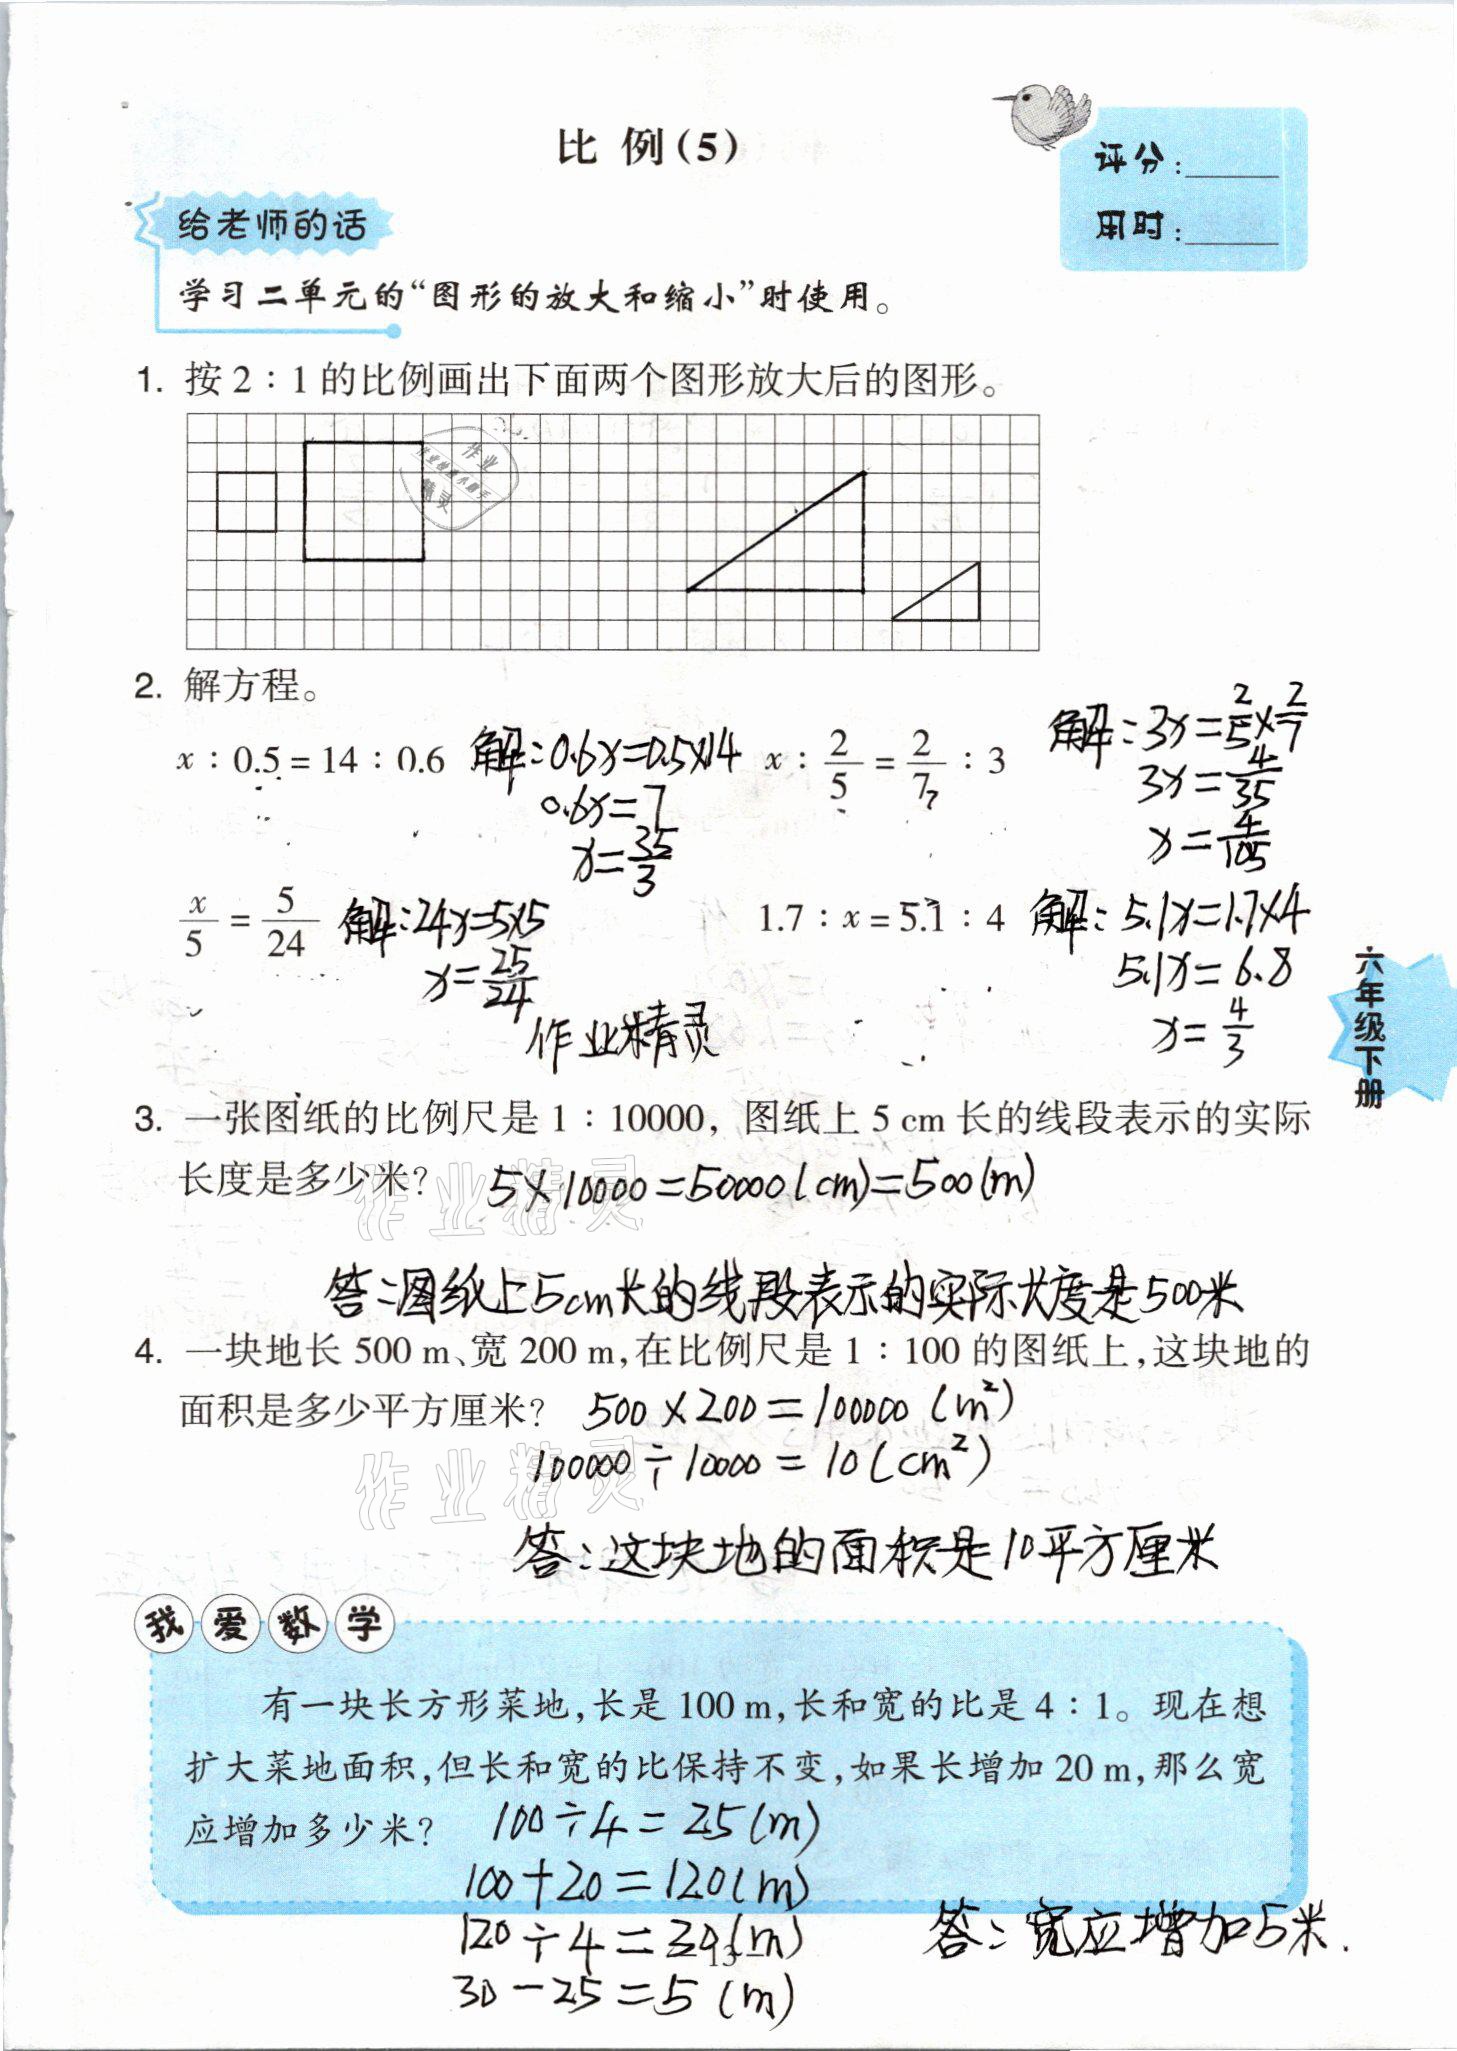 比 例(5)
评分:______
用时:______
给老师的话
学习二单元的“图形的放大和缩小”时使用。
1. 按 2∶1 的比例画出下面两个图形放大后的图形。
作业
作业检查小助手
精灵
2. 解方程。
x∶0.5=14∶0.6 解:0.6x=0.5×14
0.6x=7
x=35/3
x∶2/5=2/7∶3 解:3x=2/5×2/7
3x=4/35
x=4/105
x/5=5/24 解:24x=5×5
x=25/24
作业精灵
1.7∶x=5.1∶4 解:5.1x=1.7×4
5.1x=6.8
x=4/3
六年级下册
3. 一张图纸的比例尺是 1∶10000, 图纸上 5 cm 长的线段表示的实际
长度是多少米? 5×10000=50000(cm)=500(m)
作业精灵
答:图纸上5cm长的线段表示的实际长度是500米
4. 一块地长 500 m、宽 200 m,在比例尺是 1∶100 的图纸上,这块地的
面积是多少平方厘米? 500×200=100000(m²)
100000÷10000=10(cm²)
作业精灵
答:这块地的面积是10平方厘米
我爱数学
有一块长方形菜地,长是 100 m,长和宽的比是 4∶1。现在想
扩大菜地面积,但长和宽的比保持不变,如果长增加 20 m,那么宽
应增加多少米? 100÷4=25(m)
100+20=120(m)
120÷4=30(m)
30-25=5(m)
答:宽应增加5米.
13